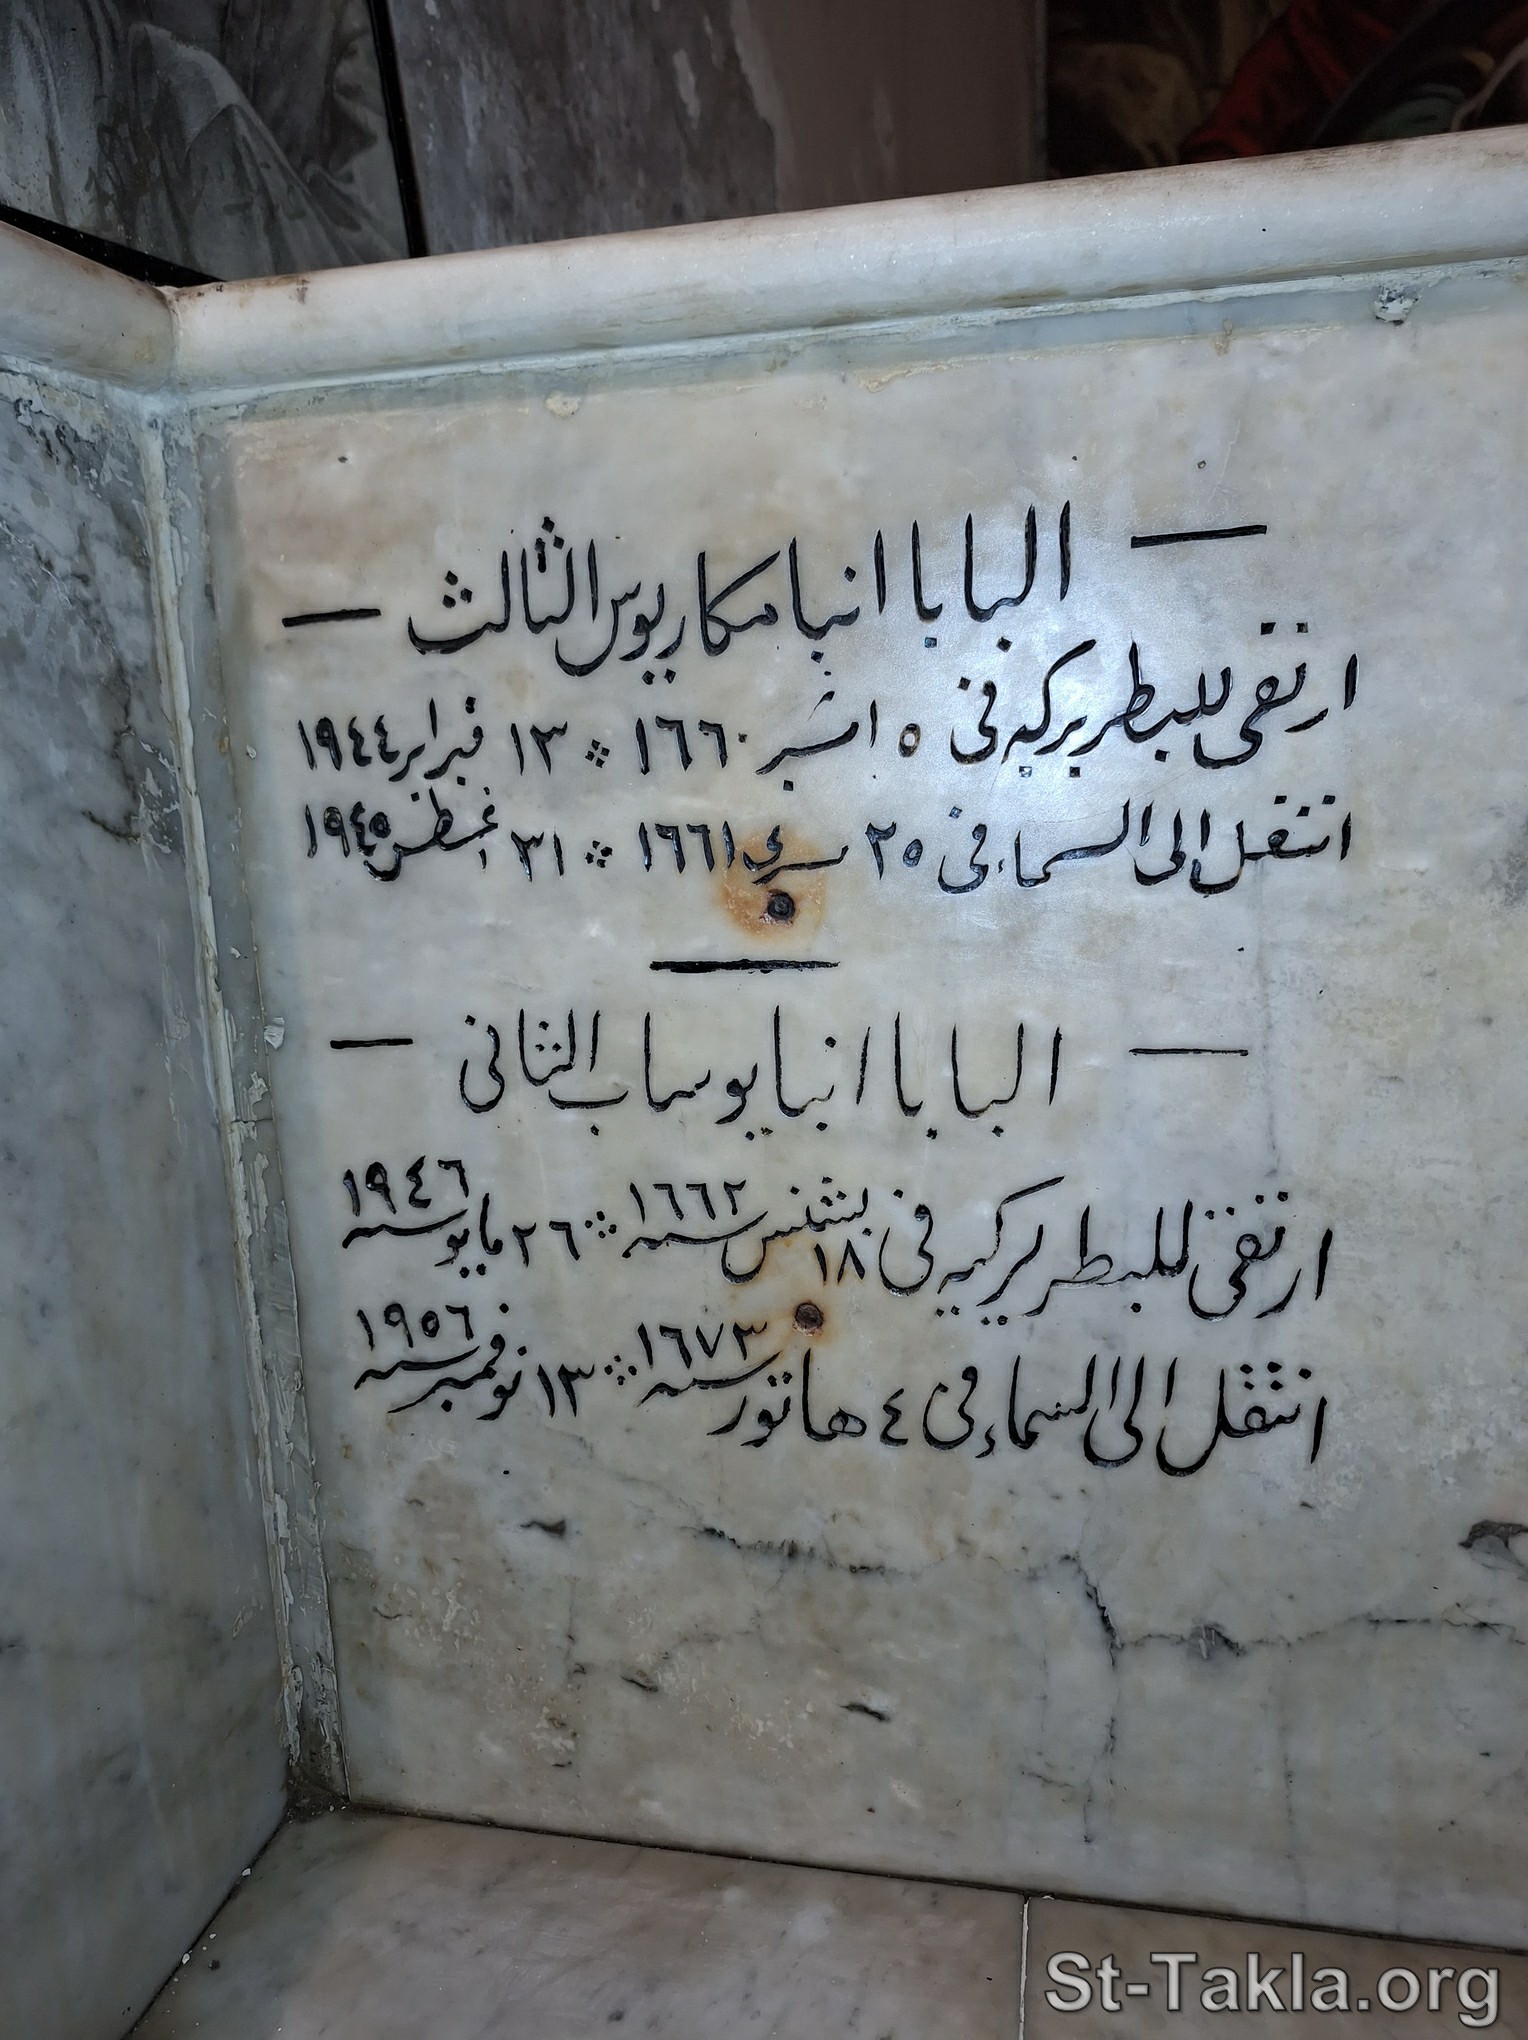 — البابا انبا مكاريوس الثالث —
ارتقى للبطريركيه فى ٥ امشير ١٦٦٠ ⁘ ١٣ فبراير ١٩٤٤
انتقل الى السماء فى ٢٥ مسرى ١٦٦١ ⁘ ٣١ اغسطس ١٩٤٥
—
— البابا انبا يوساب الثانى —
ارتقى للبطريركيه فى ١٨ بشنس سنه ١٦٦٢ ⁘ ٢٦ مايو سنه ١٩٤٦
انتقل الى السماء فى ٤ هاتور سنه ١٦٧٣ ⁘ ١٣ نوفمبر سنه ١٩٥٦
St-Takla.org